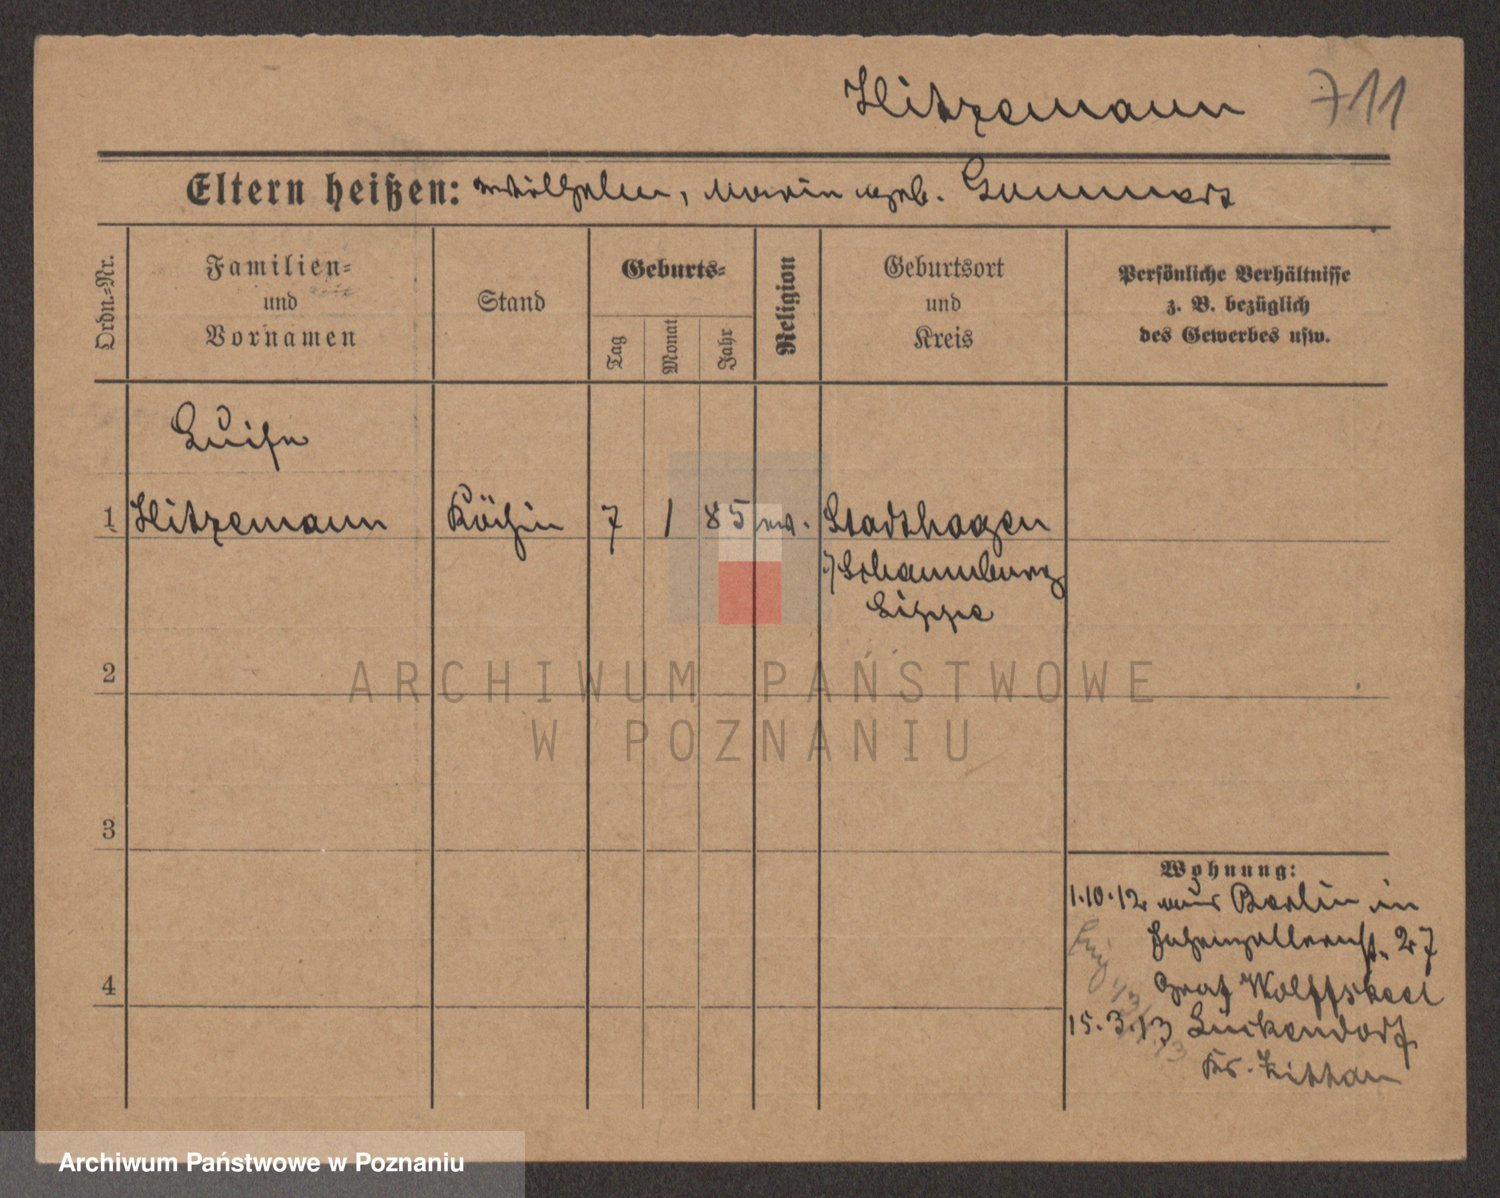 Hitzemann 711
Eltern heißen: Wilhelm, Marie geb. Gummert
Ordn.-Nr.
Familien-
und
Vornamen
Stand
Geburts-
Tag
Monat
Jahr
Religion
Geburtsort
und
Kreis
Persönliche Verhältnisse
z. B. bezüglich
des Gewerbes usw.
Luise
1 Hitzemann Köchin 7 1 85 ev. Stadthagen
Schaumburg
Lippe
2
ARCHIWUM PAŃSTWOWE
W POZNANIU
3
4
Wohnung:
1.10.12 aus Berlin in
Hohenzollernst. 27
Graf Wolffskeel
15.3.13 Lückendorf
Kr. Zittau
Archiwum Państwowe w Poznaniu